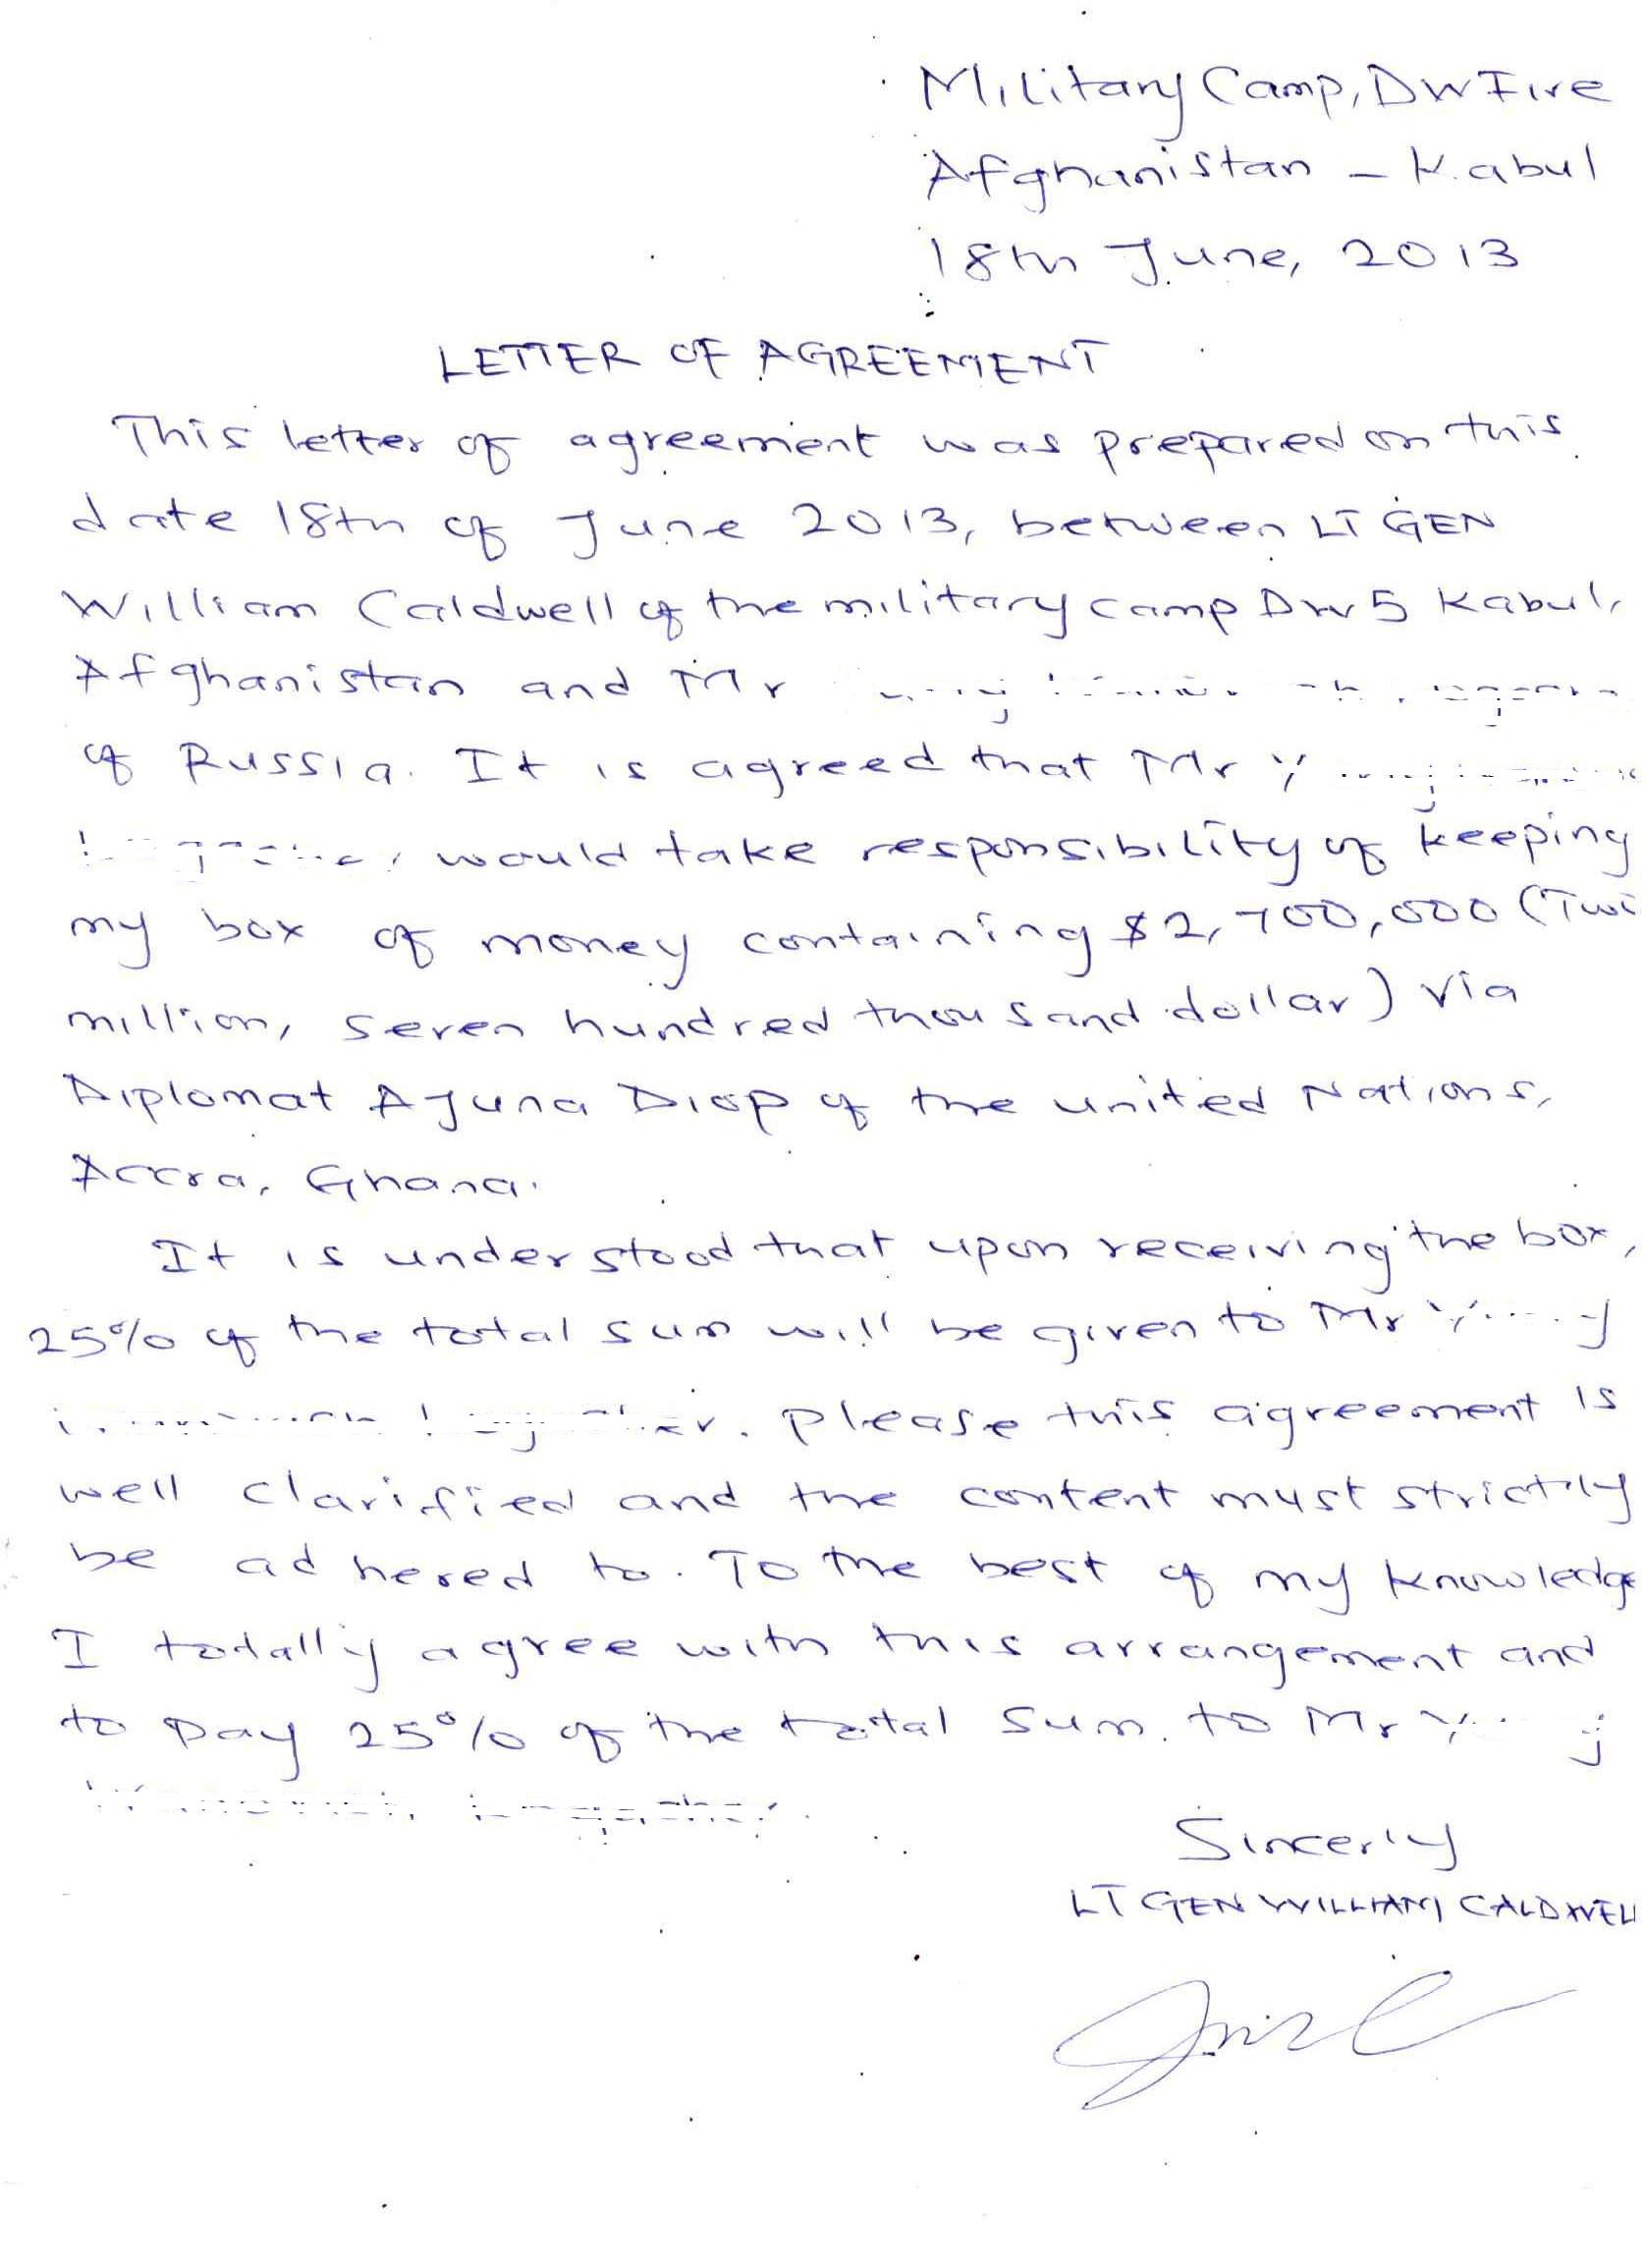 Military Camp, DW Five
Afghanistan - Kabul
18th June, 2013
LETTER OF AGREEMENT
This letter of agreement was prepared on this
date 18th of June 2013, between LT GEN
William Caldwell of the military camp DW 5 Kabul,
Afghanistan and Mr
of Russia. It is agreed that Mr Y
would take responsibility of keeping
my box of money containing $2,700,000 (Two
million, seven hundred thousand dollar) via
Diplomat Ajuna Diop of the united Nations,
Accra, Ghana.
It is understood that upon receiving the box,
25% of the total sum will be given to Mr Y
please this agreement is
well clarified and the content must strictly
be adhered to. To the best of my knowledge
I totally agree with this arrangement and
to pay 25% of the total sum. to Mr Y
Sincerly
LT GEN WILLIAM CALDWELL